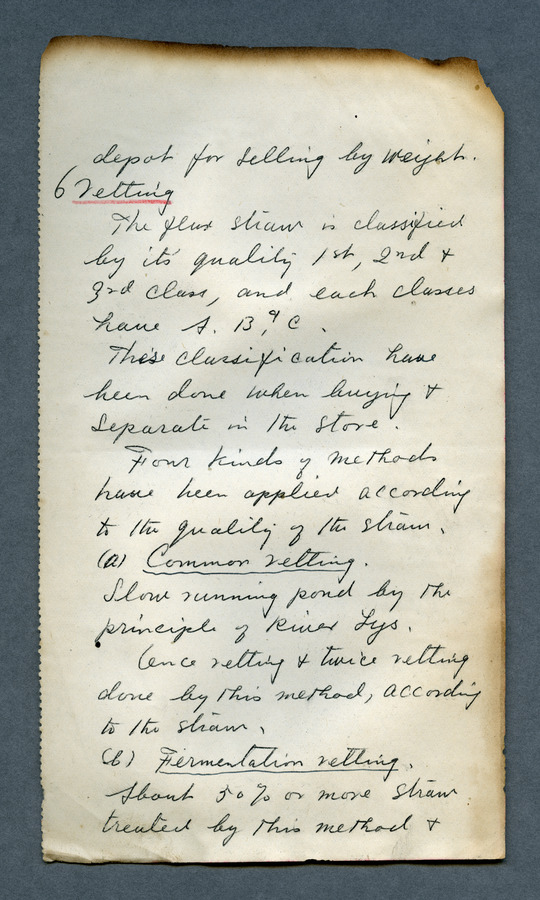 depot for selling by weight.
6 Retting
The flax straw is classified
by it's quality 1st, 2nd &
3rd class, and each classes
have A. B, & C.
These classification have
been done when buying &
separate in the store.
Four kinds of methods
have been applied according
to the quality of the straw.
(a) Common retting.
Slow running pond by the
principle of River Lys.
Once retting & twice retting
done by this method, according
to the straw.
(b) Fermentation retting.
About 50% or more straw
treated by this method &